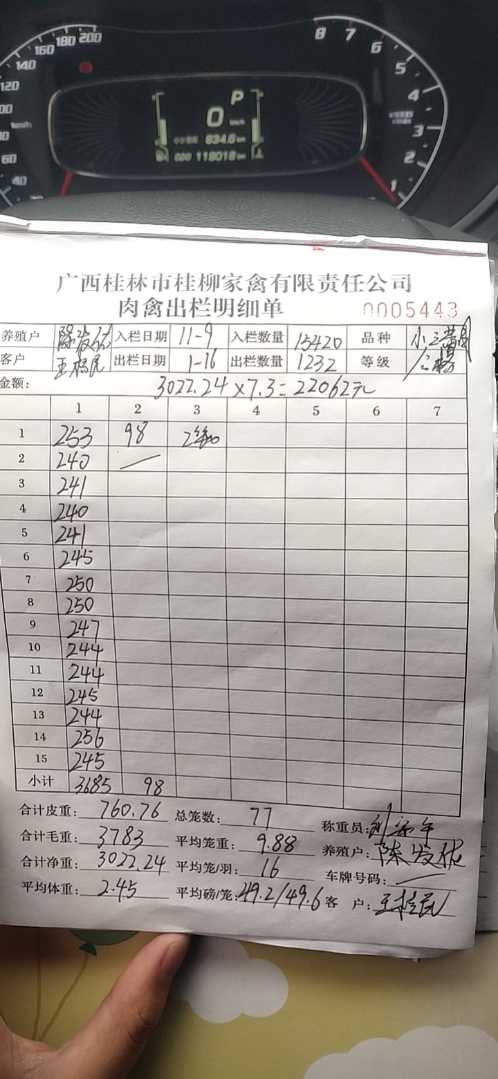 160 180 200
140
120
60
40
8 7 6 5 4 3 2 1
P
0 km/h
634.6 km
ODO 118018 km
广西桂林市桂柳家禽有限责任公司
肉禽出栏明细单 0005443
养殖户 陈发优 入栏日期 11-9 入栏数量 15420 品种
客户 王桂民 出栏日期 1-16 出栏数量 1232 等级
金额: 3022.24×7.3=22062元
1 2 3 4 5 6 7
1 253 98 2笼
2 240
3 241
4 240
5 241
6 245
7 250
8 250
9 247
10 244
11 244
12 245
13 244
14 256
15 245
小计 3685 98
合计皮重: 760.76 总笼数: 77 称重员:
合计毛重: 3783 平均笼重: 9.88 养殖户: 陈发优
合计净重: 3022.24 平均笼/羽: 16 车牌号码:
平均体重: 2.45 平均磅/笼: 49.2/49.6 客 户: 王桂民